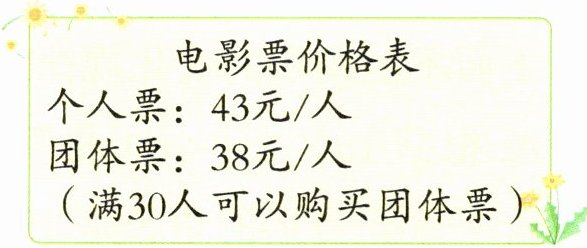 电影票价格表
个人票：43元/人
团体票：38元/人
（满30人可以购买团体票）